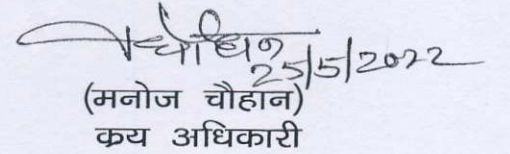 25/5/2022
(मनोज चौहान)
क्रय अधिकारी